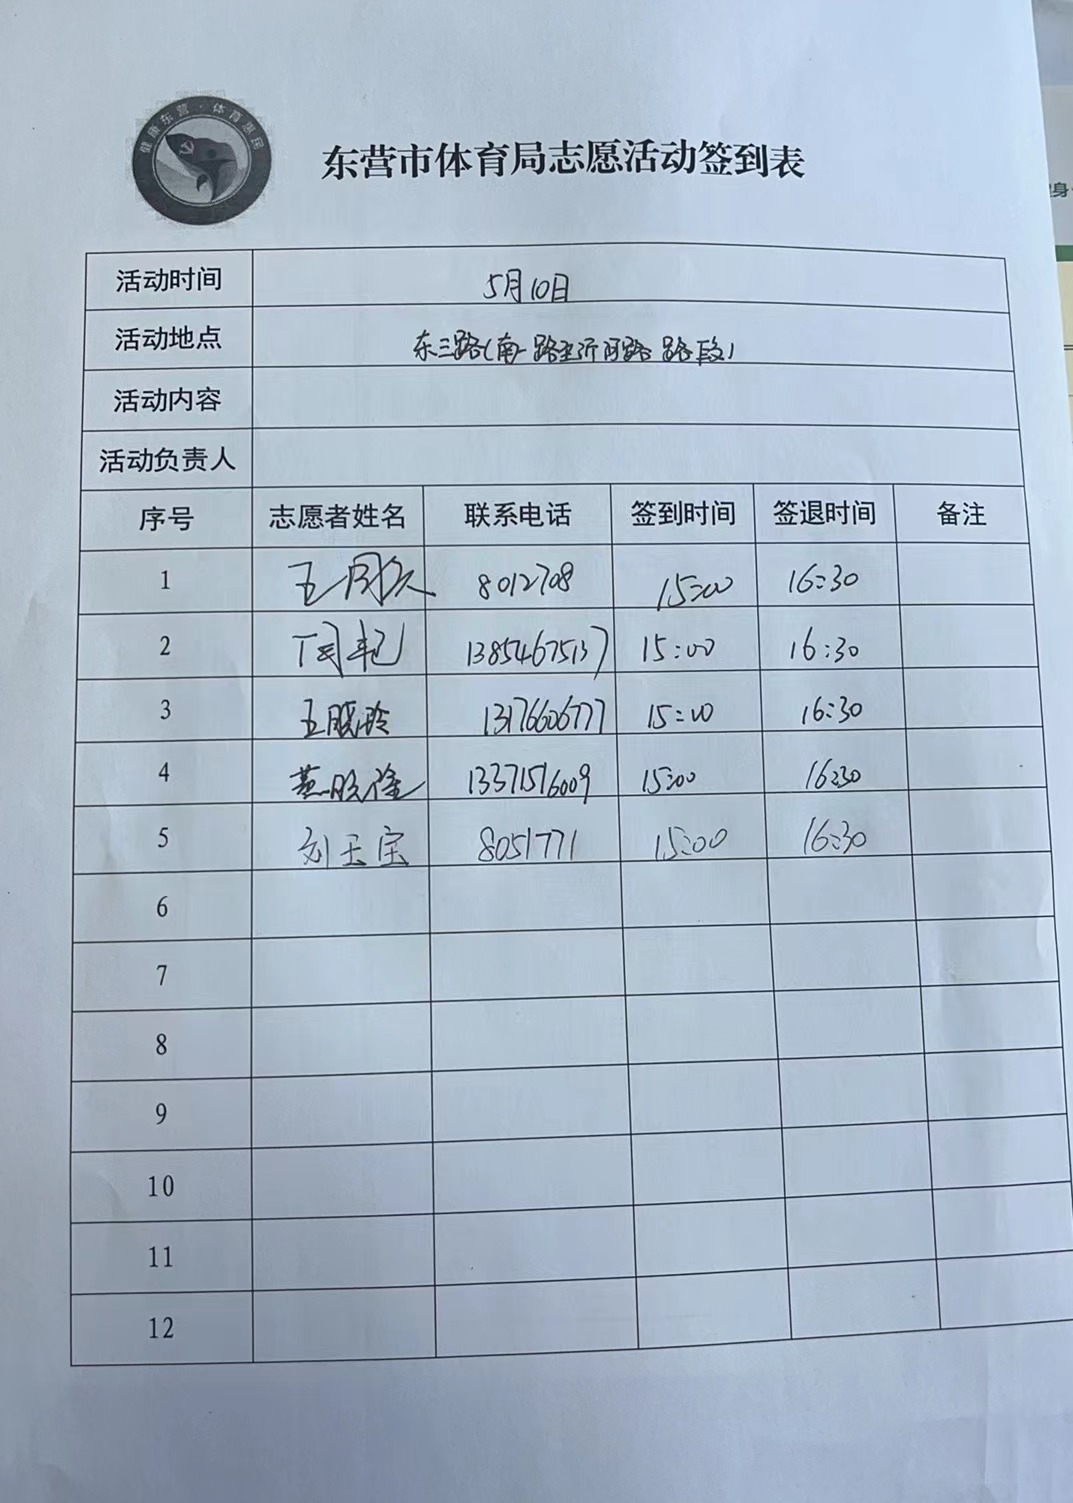 健康东营·体育惠民
东营市体育局志愿活动签到表
身
活动时间 5月10日
活动地点 东三路(南一路至沂河路路段)
活动内容
活动负责人
序号 志愿者姓名 联系电话 签到时间 签退时间 备注
1 8012708 15:00 16:30
2 13854675137 15:00 16:30
3 王晓玲 13176606777 15:00 16:30
4 13371576009 15:00 16:30
5 刘玉宝 8051771 15:00 16:30
6
7
8
9
10
11
12